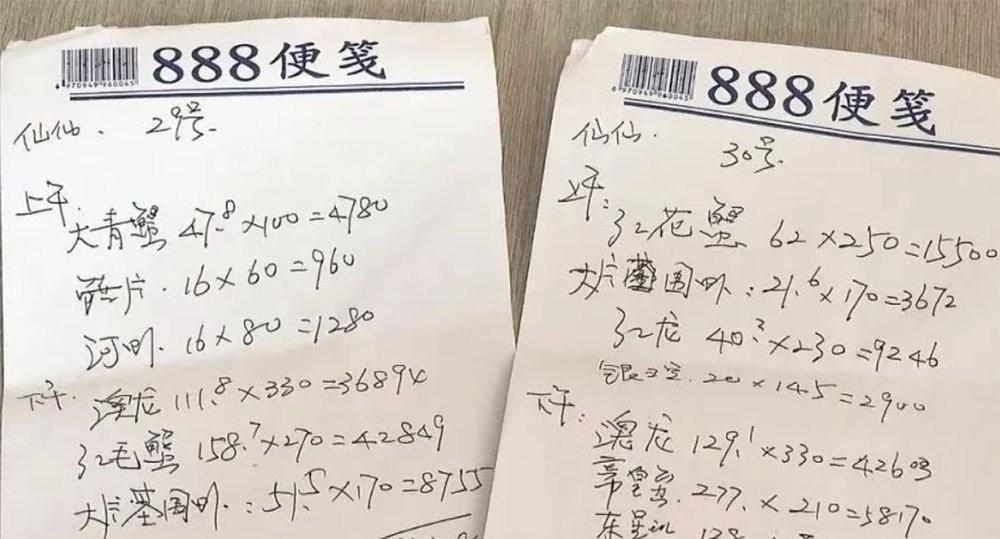 888便笺
6970949960045
仙仙. 29号.
上午.
大青蟹 47.8×100=4780
16×60=960
河虾. 16×80=1280
下午. 澳龙 111.8×330=36894
红毛蟹 158.7×270=42849
大片基围虾.:51.5×170=8755
888便笺
6970949960045
仙仙. 30号.
上午:
红花蟹 62×250=15500
大片基围虾:21.6×170=3672
红龙 40.3×230=9246
20×145=2900
下午: 澳龙 129.1×330=42603
帝皇蟹. 277.×210=58170
东星斑